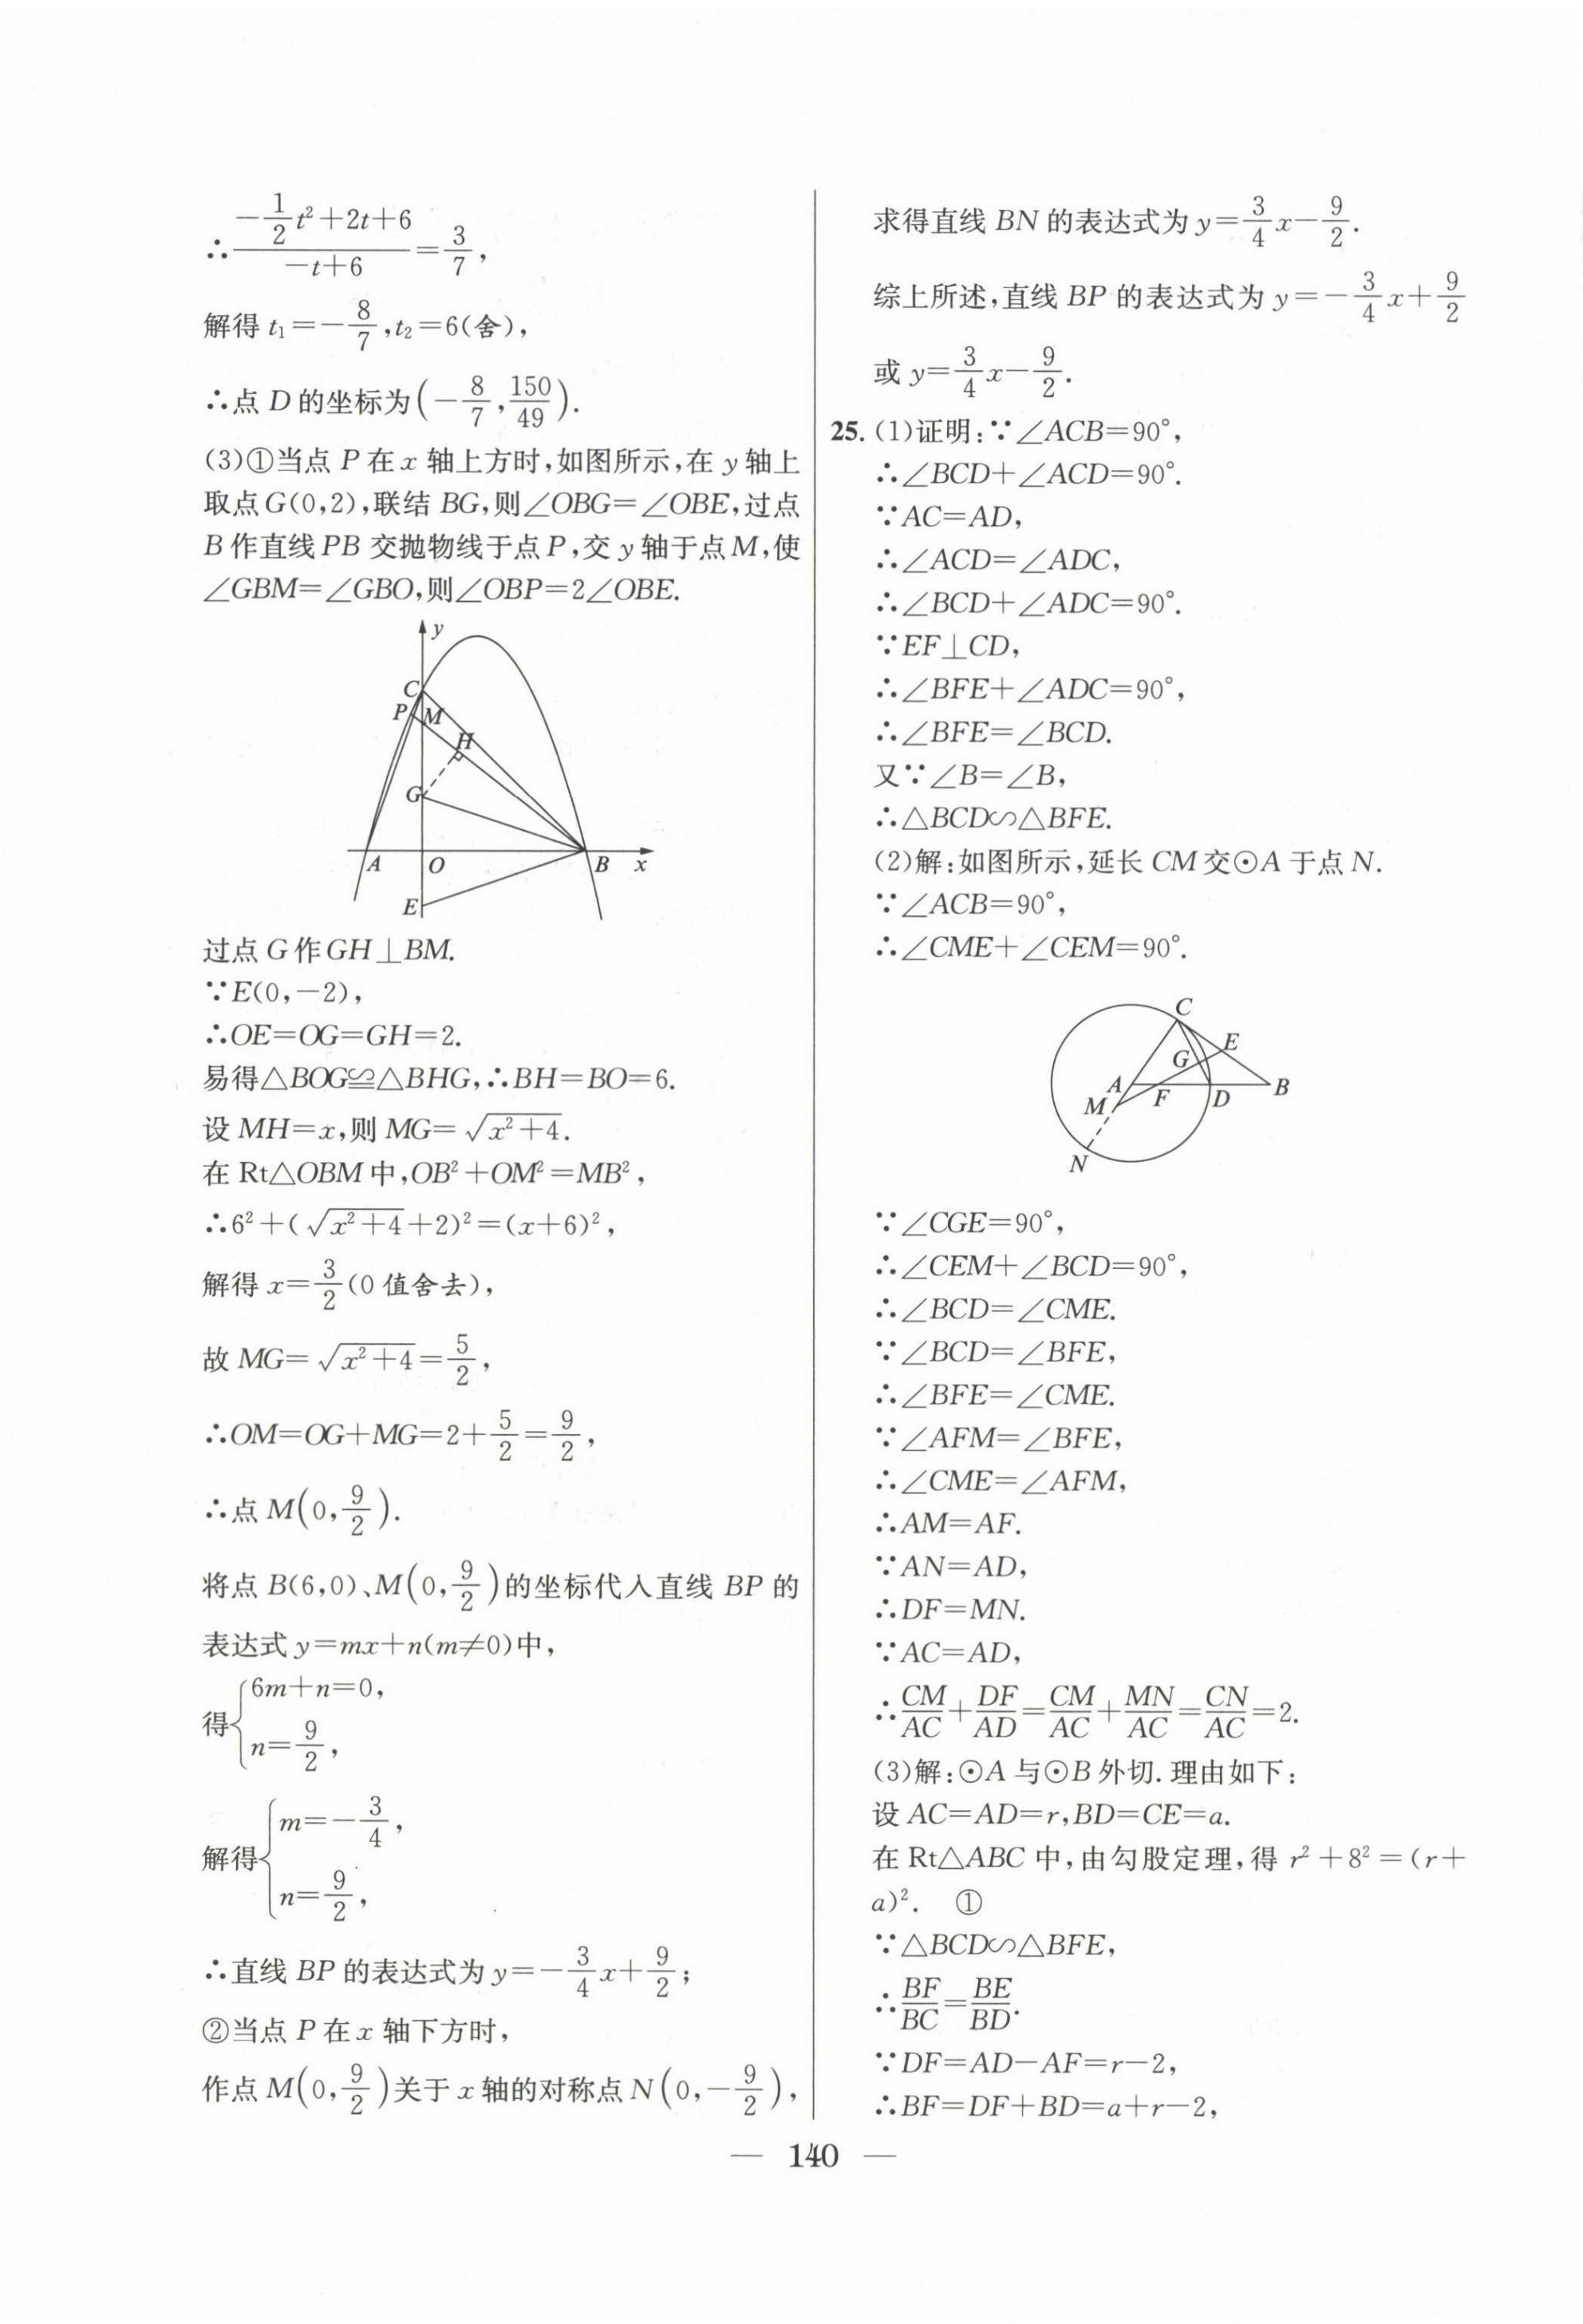 ∴(-1/2 t²+2t+6)/(-t+6)=3/7,
解得 t₁=-8/7,t₂=6(舍),
∴点 D 的坐标为(-8/7,150/49).
(3)①当点 P 在 x 轴上方时,如图所示,在 y 轴上
取点G(0,2),联结 BG,则∠OBG=∠OBE,过点
B 作直线 PB 交抛物线于点 P,交 y 轴于点 M,使
∠GBM=∠GBO,则∠OBP=2∠OBE.
y
C
P
M
H
G
A
O
B
x
E
过点 G 作 GH⊥BM.
∵E(0,-2),
∴OE=OG=GH=2.
易得△BOG≌△BHG,∴BH=BO=6.
设 MH=x,则 MG=√(x²+4).
在 Rt△OBM 中,OB²+OM²=MB²,
∴6²+(√(x²+4)+2)²=(x+6)²,
解得 x=3/2(0 值舍去),
故 MG=√(x²+4)=5/2,
∴OM=OG+MG=2+5/2=9/2,
∴点 M(0,9/2).
将点 B(6,0)、M(0,9/2)的坐标代入直线 BP 的
表达式 y=mx+n(m≠0)中,
得{6m+n=0,
n=9/2,
解得{m=-3/4,
n=9/2,
∴直线 BP 的表达式为 y=-3/4 x+9/2;
②当点 P 在 x 轴下方时,
作点 M(0,9/2)关于 x 轴的对称点 N(0,-9/2),
求得直线 BN 的表达式为 y=3/4 x-9/2.
综上所述,直线 BP 的表达式为 y=-3/4 x+9/2
或 y=3/4 x-9/2.
25. (1)证明:∵∠ACB=90°,
∴∠BCD+∠ACD=90°.
∵AC=AD,
∴∠ACD=∠ADC,
∴∠BCD+∠ADC=90°.
∵EF⊥CD,
∴∠BFE+∠ADC=90°,
∴∠BFE=∠BCD.
又∵∠B=∠B,
∴△BCD∽△BFE.
(2)解:如图所示,延长 CM 交⊙A 于点 N.
∵∠ACB=90°,
∴∠CME+∠CEM=90°.
C
E
G
A
B
M
F
D
N
∵∠CGE=90°,
∴∠CEM+∠BCD=90°,
∴∠BCD=∠CME.
∵∠BCD=∠BFE,
∴∠BFE=∠CME.
∵∠AFM=∠BFE,
∴∠CME=∠AFM,
∴AM=AF.
∵AN=AD,
∴DF=MN.
∵AC=AD,
∴CM/AC+DF/AD=CM/AC+MN/AC=CN/AC=2.
(3)解:⊙A 与⊙B 外切. 理由如下:
设 AC=AD=r,BD=CE=a.
在 Rt△ABC 中,由勾股定理,得 r²+8²=(r+
a)². ①
∵△BCD∽△BFE,
∴BF/BC=BE/BD.
∵DF=AD-AF=r-2,
∴BF=DF+BD=a+r-2,
— 140 —